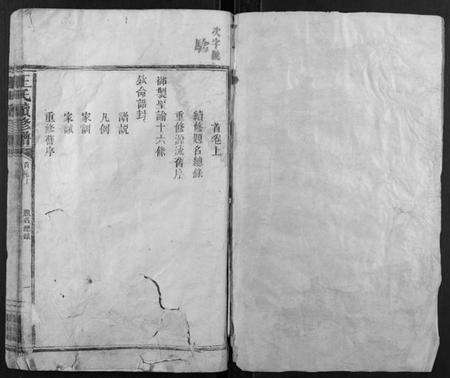 次字號
首卷上
續修題名總錄
重修源流舊序
御製聖諭十六條
欽命誥封
譜說
凡例
家訓
家誡
重修舊序
氏續修譜